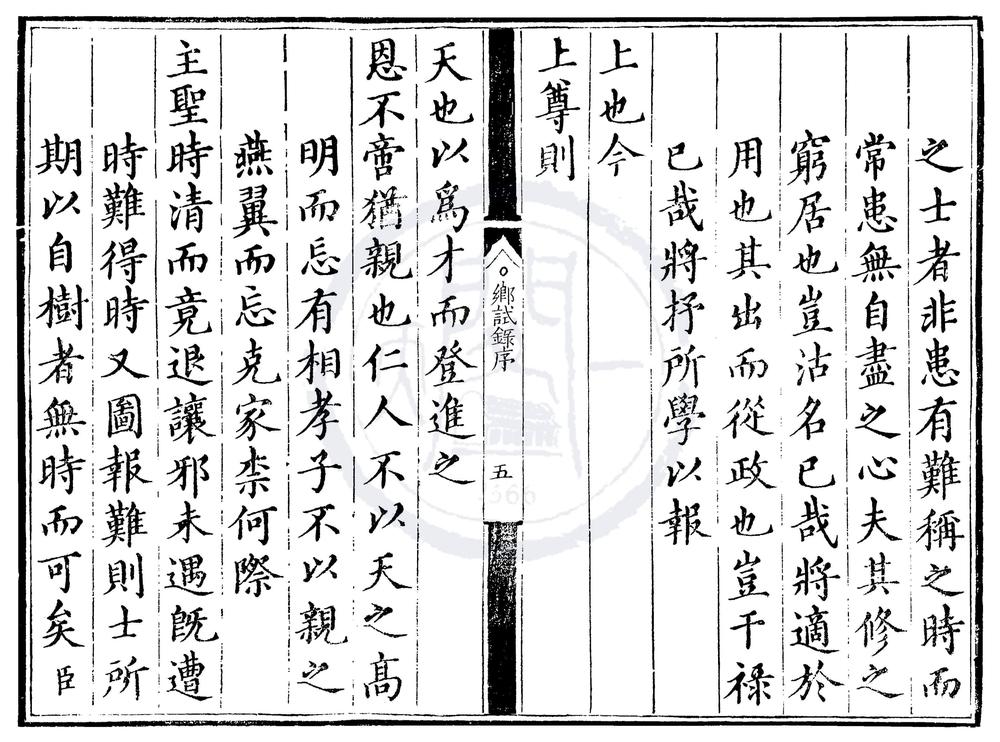 之士者非患有難稱之時而
常患無自盡之心夫其修之
窮居也豈沽名已哉將適於
用也其出而從政也豈干祿
已哉將抒所學以報
上也今
上尊則
鄉試錄序
五
天也以爲才而登進之
恩不啻猶親也仁人不以天之高
明而忘有相孝子不以親之
燕翼而忘克家柰何際
主聖時清而竟退讓邪未遇旣遭
時難得時又圖報難則士所
期以自樹者無時而可矣臣